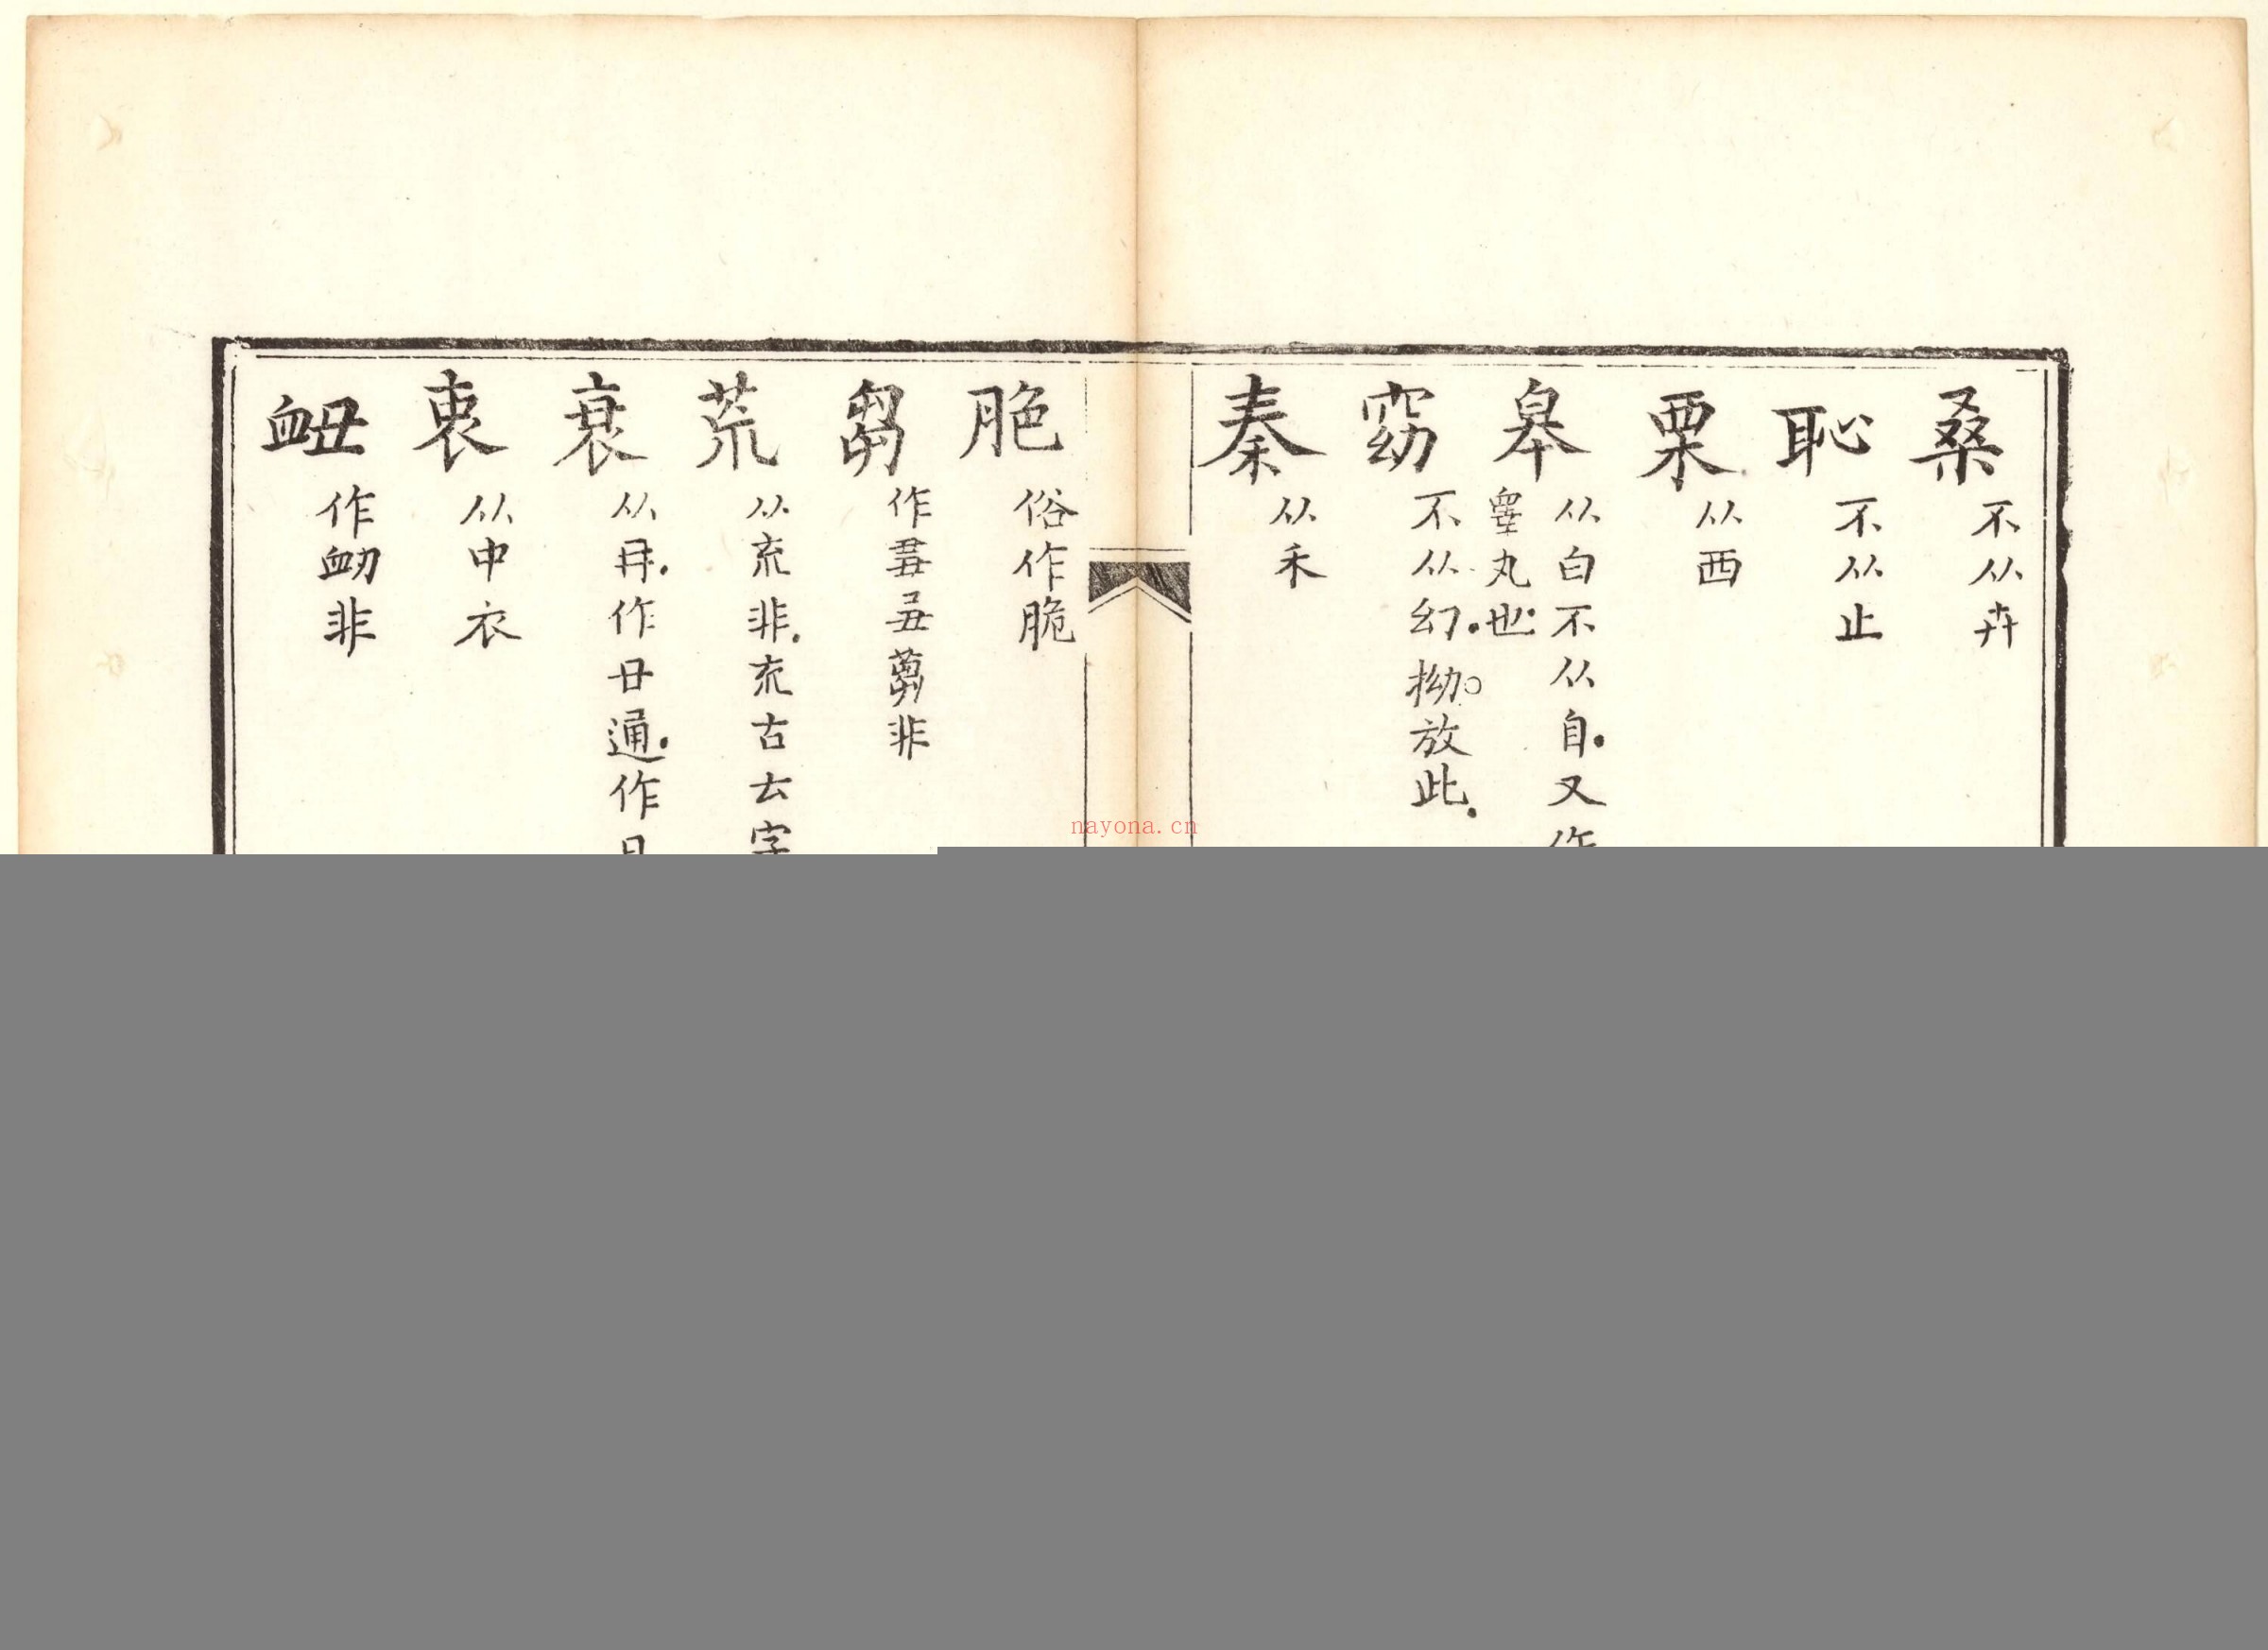 桑 不从卉
恥 不从止
栗 从西
皋 从白不从自又作
睾丸也
窈 不从幻拗放此
秦 从禾
脃 俗作脆
芻 作非
荒 从㐬非㐬古𠫓字
衰 从冄作廿通作
衷 从中衣
衄 作衂非
nayona.cn